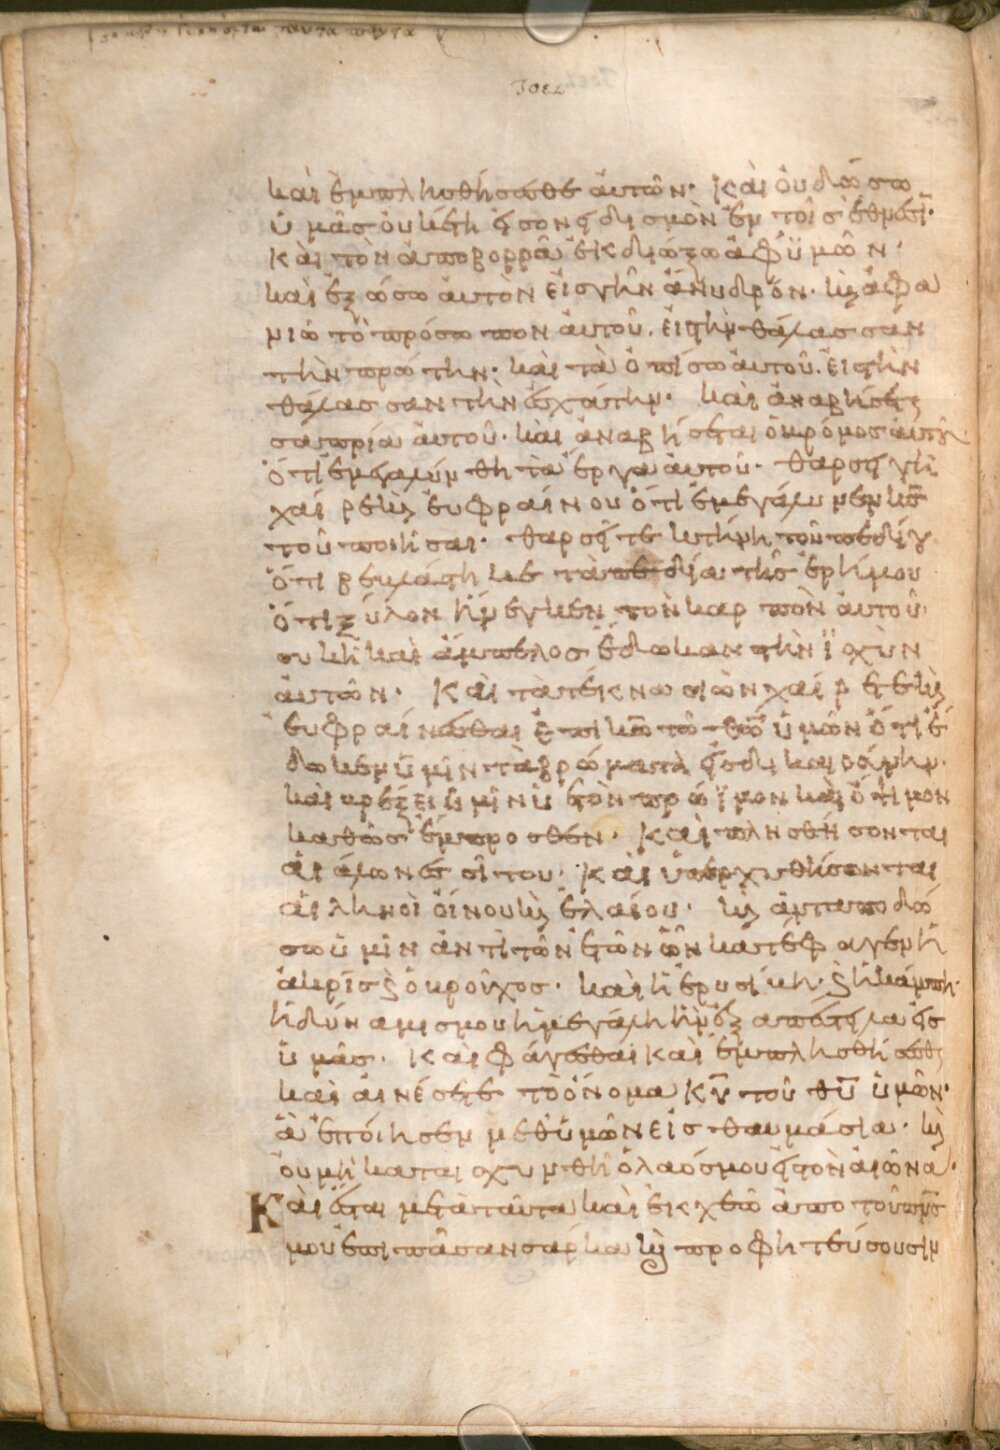 Ἰοελ
καὶ ἐμπλησθήσεσθε ἀυτῶν· Καὶ ὀυ δώσω
ὑμᾶς ὀυκέτι εἰς ὀνειδισμὸν ἐν τοῖς ἔθνεσι·
Καὶ τὸν ἀπο βορρᾶ ἐκδιώξω ἀφ ὑμῶν·
καὶ ἐξώσω ἀυτὸν εἰς γῆν ἄνυδρον· κ ἀφα
νιῶ τὸ πρόσωπον ἀυτοῦ. εἰς τὴν θάλασσαν
τὴν πρώτην· καὶ τὰ ὀπίσω ἀυτοῦ. εἰς τὴν
θάλασσαν τὴν ἐσχάτην· καὶ ἀναβήσεται
σαπρία ἀυτοῦ· καὶ ἀναβήσεται ὁ βρόμος ἀυτοῦ
ὅτι ἐμεγαλύνθη τὰ ἔργα ἀυτοῦ· θάρσει γῆ
χαῖρε κ ἐυφραίνου ὅτι ἐμεγάλυνεν κς
τοῦ ποιῆσαι· θαρσεῖτε κτήνη τοῦ πεδίου
ὅτι βεβλάστηκε τὰ πεδία τῆς ἐρήμου
ὅτι ξύλον ἤνεγκεν τὸν καρπὸν ἀυτοῦ
συκῆ καὶ ἄμπελος ἔδωκαν τὴν ἰσχὺν
ἀυτῶν· Καὶ τὰ τέκνα σιὼν χαίρετε κ
ἐυφραίνεσθαι ἐπι κω τῶ θω ὑμῶν ὅτι ἔ
δωκεν ὑμῖν τὰ βρώματα εἰς δικαιοσύνην·
καὶ βρέξει ὑμῖν ὑετὸν πρώϊμον καὶ ὄψιμον
καθὼς ἔμπροσθεν· Καὶ πλησθήσονται
αἱ ἅλωνες σίτου· Καὶ ὑπερχυθήσονται
αἱ ληνοὶ οἴνου κ ἐλαίου· κ ἀνταποδώ
σω ὑμῖν ἀντὶ τῶν ἐτῶν ὧν κατέφαγεν ἡ
ἀκρὶς κ ὁ βροῦχος· καὶ ἡ ἐρυσίβη· κ ἡ κάμπη·
ἡ δύναμις μου ἡ μεγάλη ἣν ἐξαπέστειλα εἰς
ὑμᾶς· Καὶ φάγεσθαι καὶ ἐμπλησθήσεσθε
καὶ ἀινέσετε τὸ ὄνομα κυ τοῦ θυ ὑμῶν·
ἃ ἐποίησεν μεθ ὑμῶν εἰς θαυμάσια· κ
ὀυ μὴ καταισχυνθῆ ὁ λαός μου εἰς τὸν ἀιῶνα·
Καὶ ἔσται μετὰ ταῦτα καὶ ἐκχεῶ ἀπο τοῦ πνς
μου ἐπι πᾶσαν σάρκα κ προφητεύσουσιν